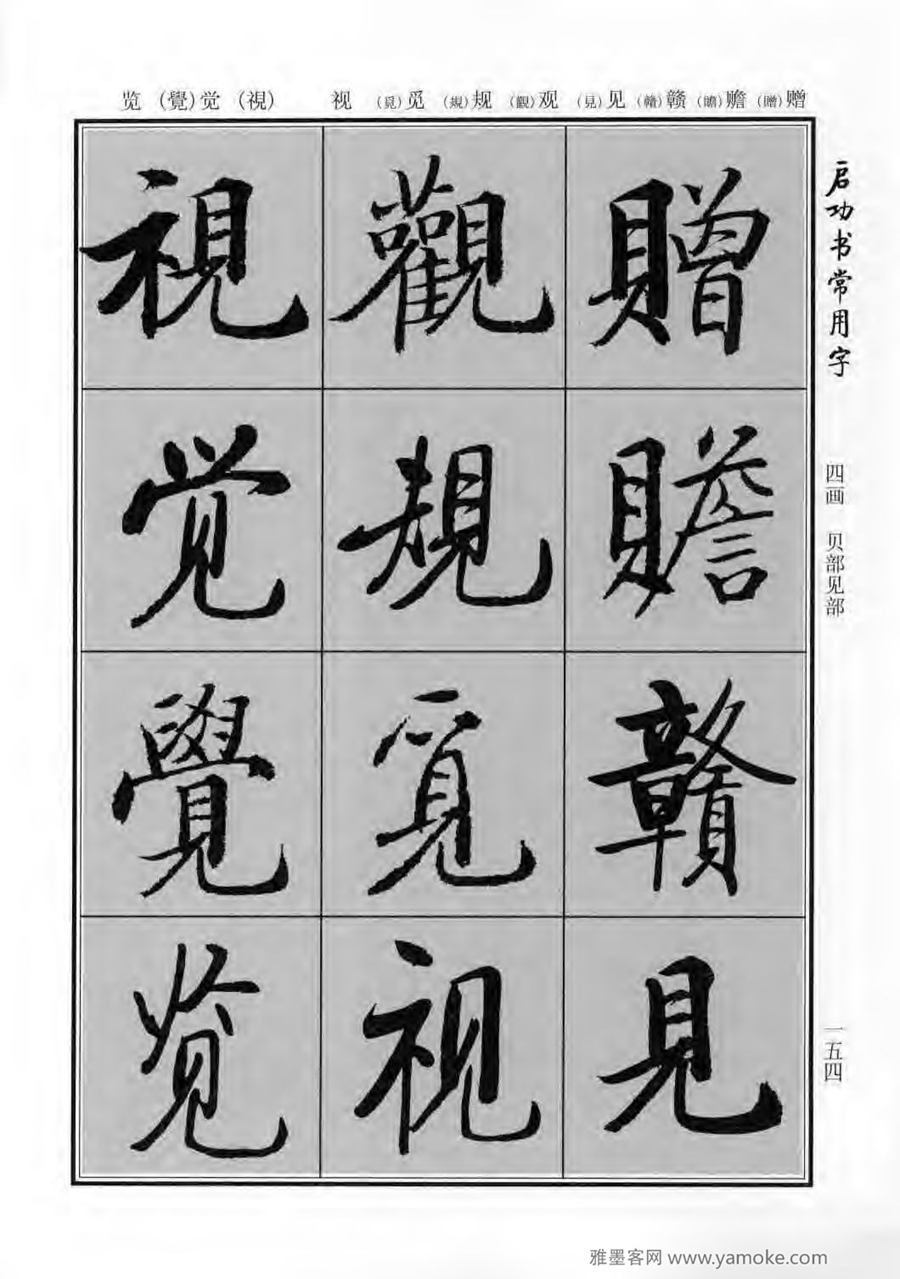 览 (覺)觉 (視) 视 (覓)觅 (規)规 (觀)观 (見)见 (贛)赣 (贍)赡 (贈)赠
启功书常用字
四画 贝部见部
一五四
贈
贍
贛
見
觀
規
覓
视
視
觉
覺
览
雅墨客网 www.yamoke.com